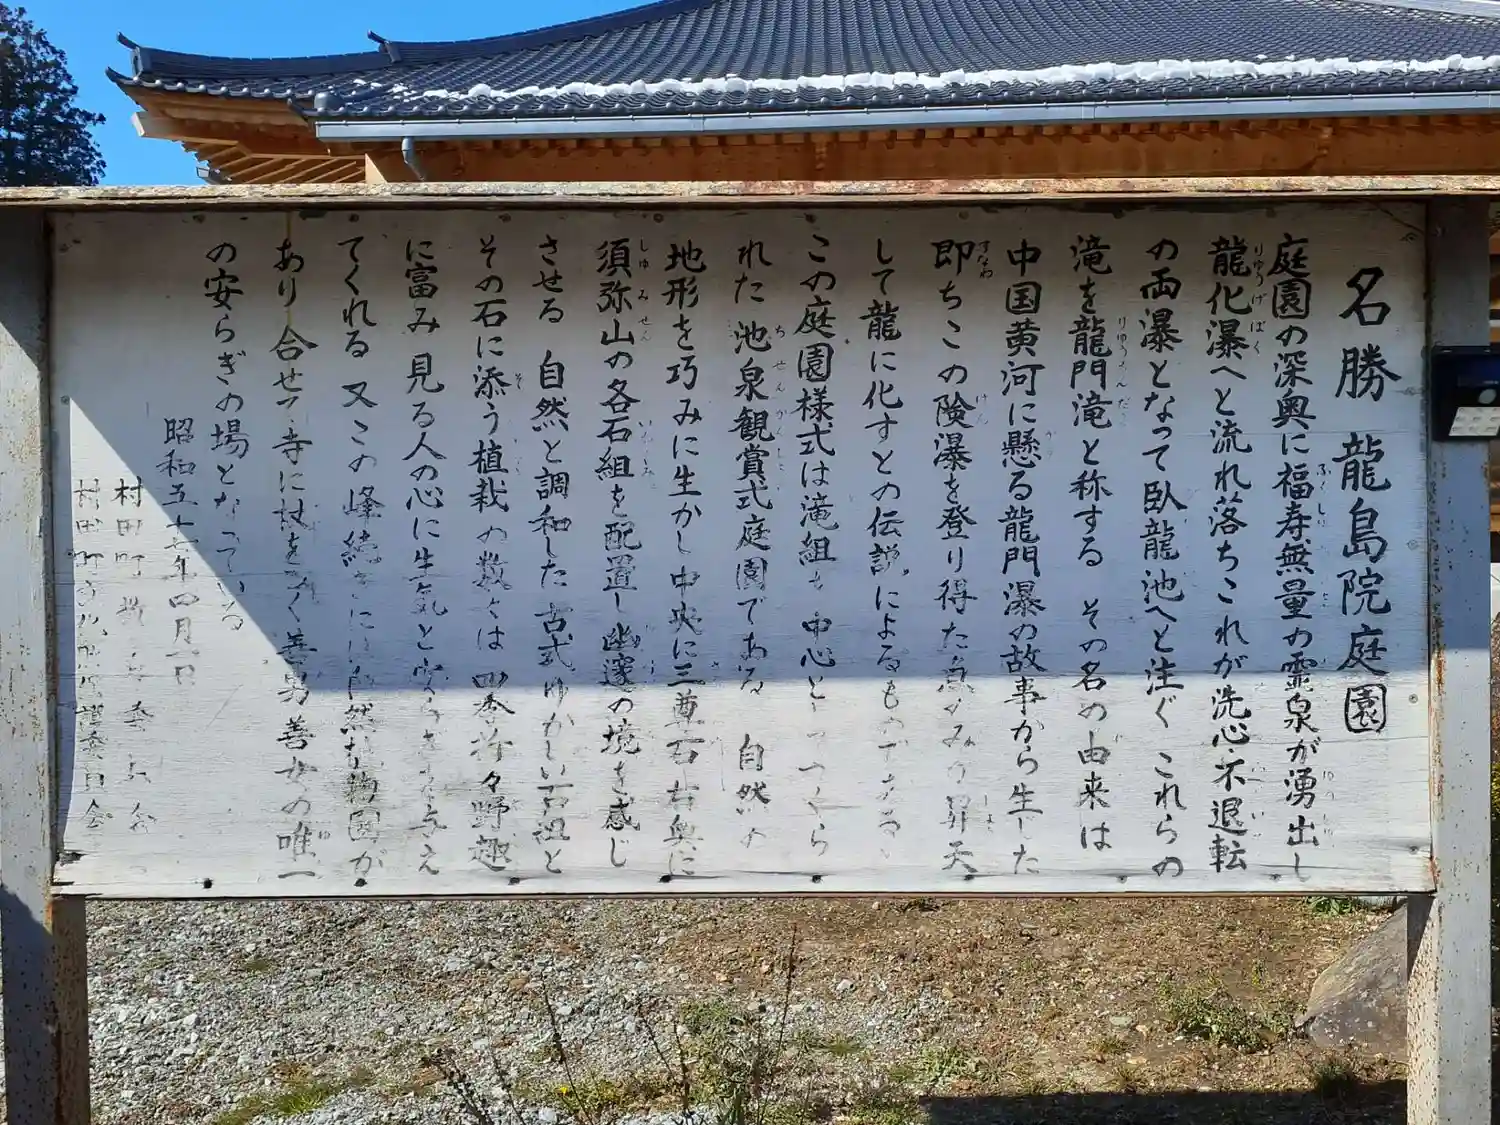 名勝 龍島院庭園
庭園の深奥に福寿無量の霊泉が湧出し
龍化瀑へと流れ落ちこれが洗心不退転
の両瀑となって臥龍池へと注ぐ これらの
滝を龍門滝と称する その名の由来は
中国黄河に懸る龍門瀑の故事から生した
即ちこの険瀑を登り得た魚がみの昇天
して龍に化すとの伝説によるものである
この庭園様式は滝組を中心としてつくら
れた 池泉観賞式庭園である 自然の
地形を巧みに生かし中央に三尊石右奥に
須弥山の各石組を配置し幽邃の境を感じ
させる 自然と調和した古式ゆかしい石組と
その石に添う植栽の数々は四季折々野趣
に富み見る人の心に生気と安らぎを与え
てくれる 又この峰続きには自然公園が
あり合せて寺に杖をひく善男善女の唯一
の安らぎの場となっている
昭和五十 年四月 日
村田町 委員会
村田町文化財保護委員会